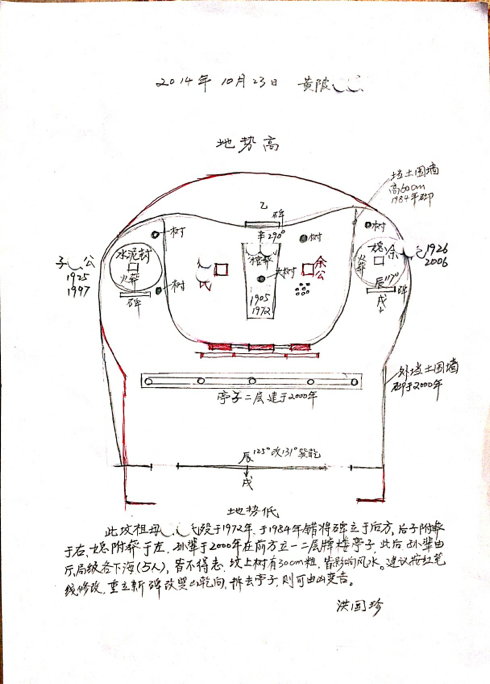 2014年 10月23日 黄陂
地势高
挡土围墙
高60cm
1984年砌
乙
碑
辛290°
树
树
子 公
1925
1997
水泥封
火葬
碑
树
氏
棺葬
大树
余公
1905
1972
树
媳余
火葬
1926
2006
辰117°
碑
戌
外挡土围墙
砌于2000年
亭子二层建于2000年
辰125°改131°巽乾
戌
地势低
此坟祖母 氏殁于1972年,于1984年错将碑立于后方,后子附葬
于右,媳附葬于左,孙辈于2000年在前方立一二层牌楼亭子,此后孙辈由
厅局级各下海(5人),皆不得志,坟上树有30cm粗,皆影响风水。建议按红笔
线修改,重立新碑改巽山乾向,拆去亭子,则可由凶变吉。
洪国珍